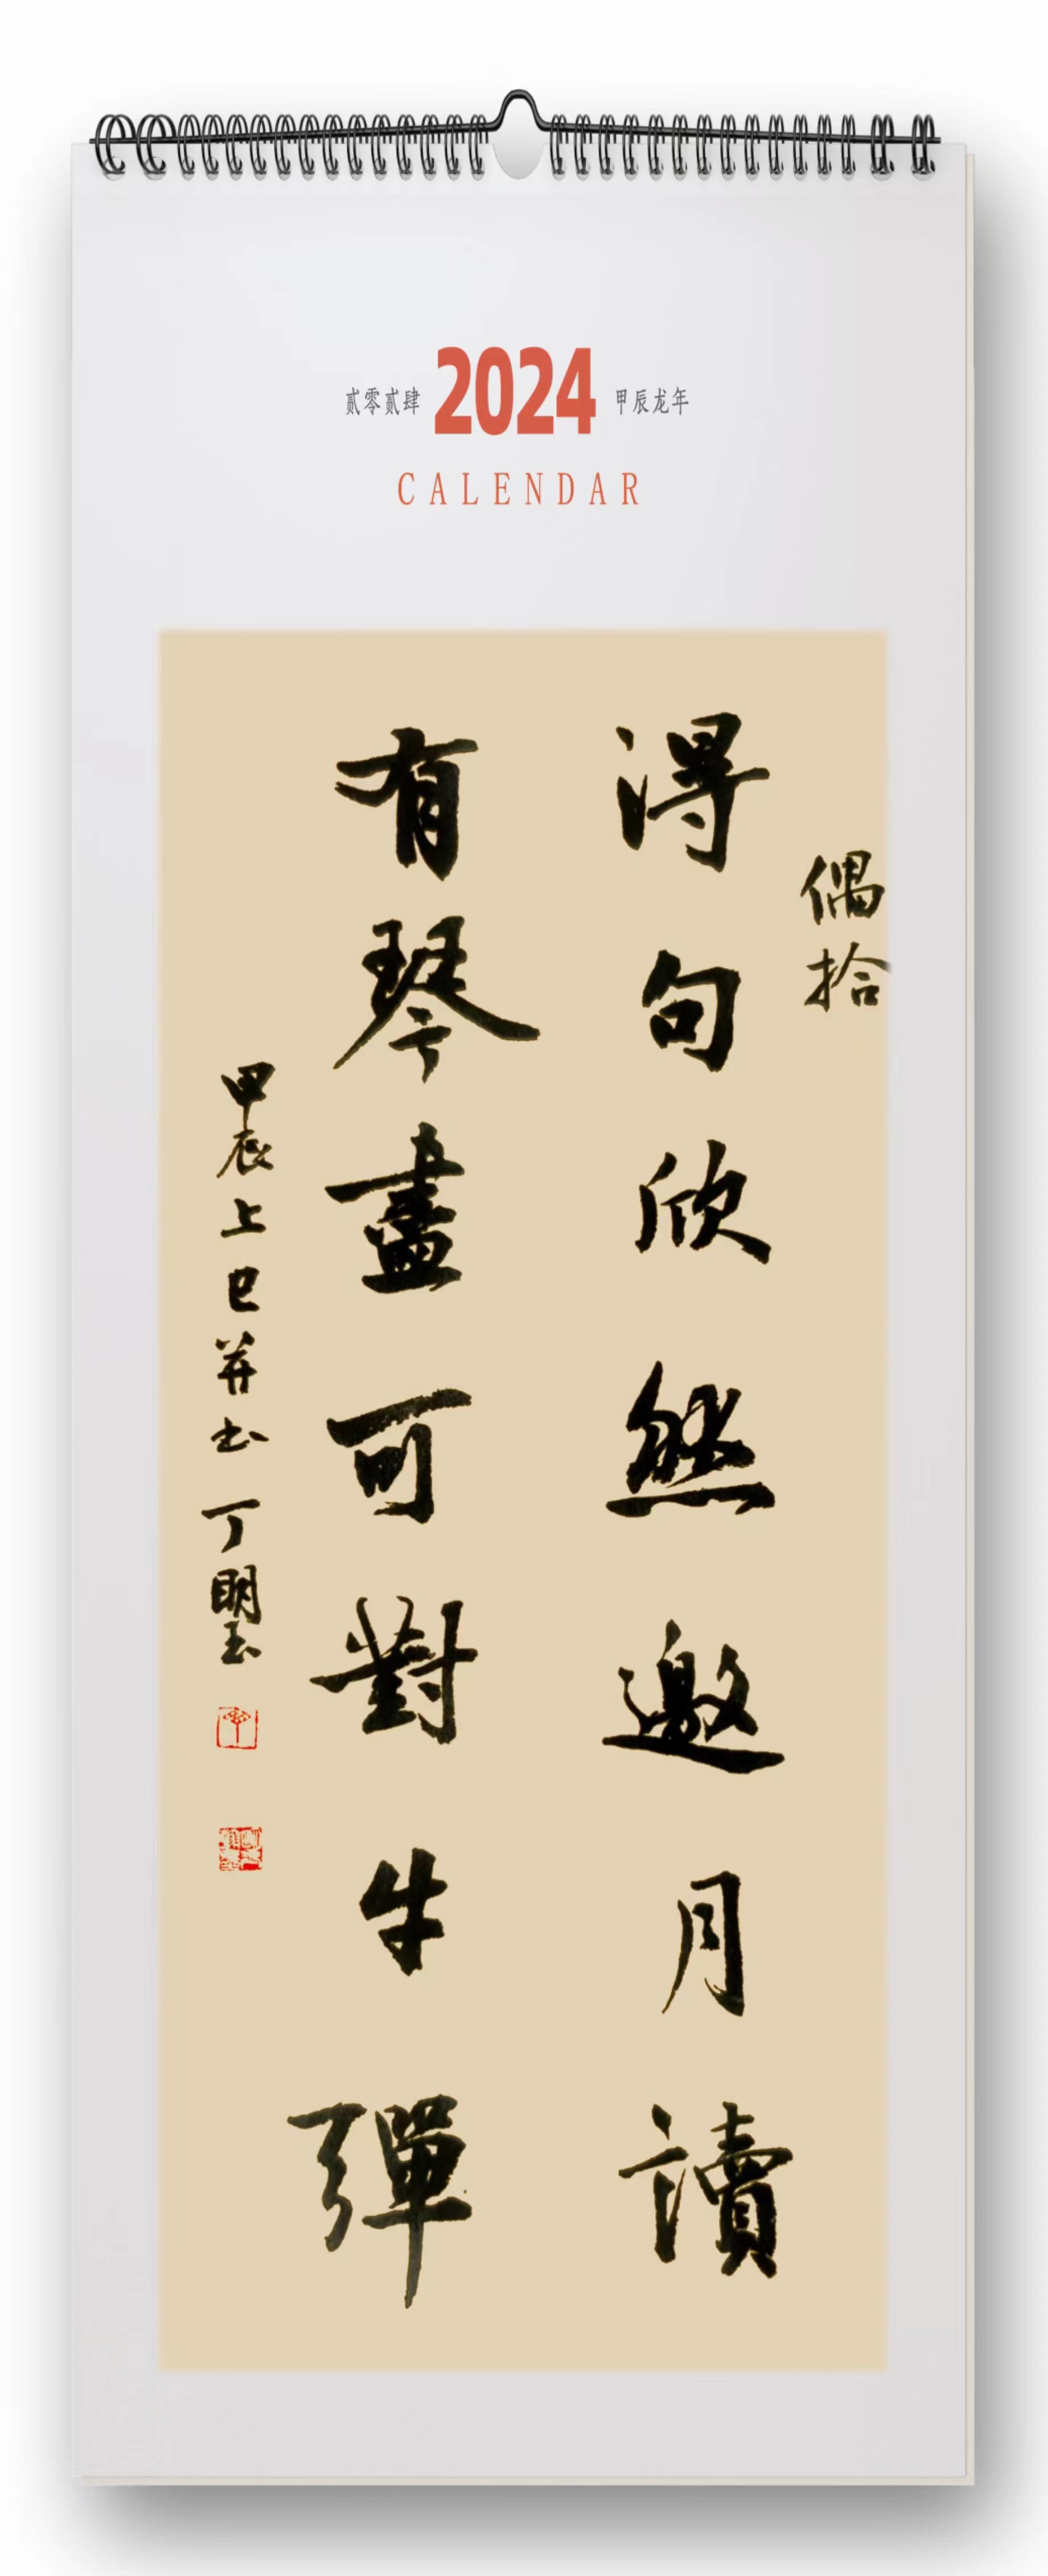 贰零贰肆 2024 甲辰龙年
CALENDAR
偶拾
得句欣然邀月读
有琴盡可對牛彈
甲辰上巳并书 丁明玉